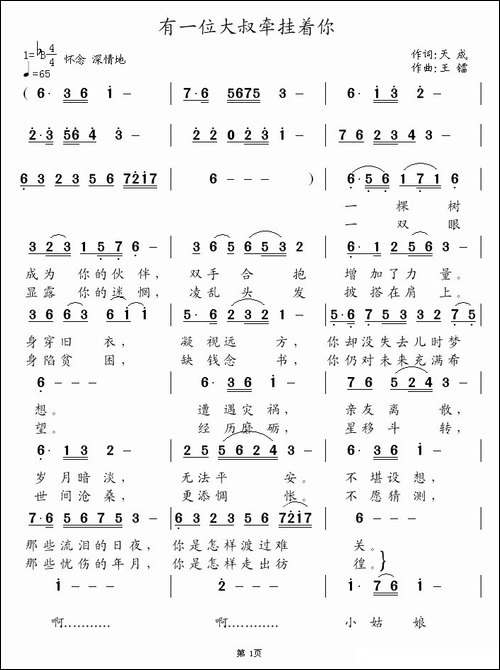 有一位大叔牵挂着你
1=♭B 4/4
♩=65 怀念 深情地
作词:天 成
作曲:王 镭
( 6· 3 6 i - | 7·6 5675 3 - | 6· i 3 2 -
2·3 56 4 3 - | 2 2 0 2 3 i - | 7 6 2 3 4 3 -
6 3 2 3 5 6 7217 | 6 - - - ) | 6·5 6 1 7 1 6
一 棵 树
一 双 眼
3 2 3 1 5 7 6 - | 3 6 5 6 5 3 2 | 6· 1 2 5 6 3 -
成为 你的伙 伴, 双手 合 抱 增加了力 量。
显露 你的迷 惘, 凌乱 头 发 披搭在肩 上。
身穿旧 衣, 凝视远 方, 你却没失去儿时梦
身陷贫 困, 缺钱念 书, 你仍对未来充满希
6 - - - | 6· 3 6 i - | 7 6 5 2 4 3 -
想。 遭遇灾祸, 亲友离 散,
望。 经历磨砺, 星移斗 转,
6· 1 3 2 - | 2 5 5 6 2 4 - | 3· 6 i i -
岁月暗淡, 无法平 安。 不堪设想,
世间沧桑, 更添惆 怅。 不愿猜测,
7·6 5 6 7 5 3 - | 6 3 2 3 5 6 7217 | 6 - -
那些流泪的日夜, 你是怎样渡过难 关。
那些忧伤的年月, 你是怎样走出彷 徨。}
i - - - | 2 - - - | i· 7 6 i -
啊............ 啊............ 小 姑 娘
第 1页